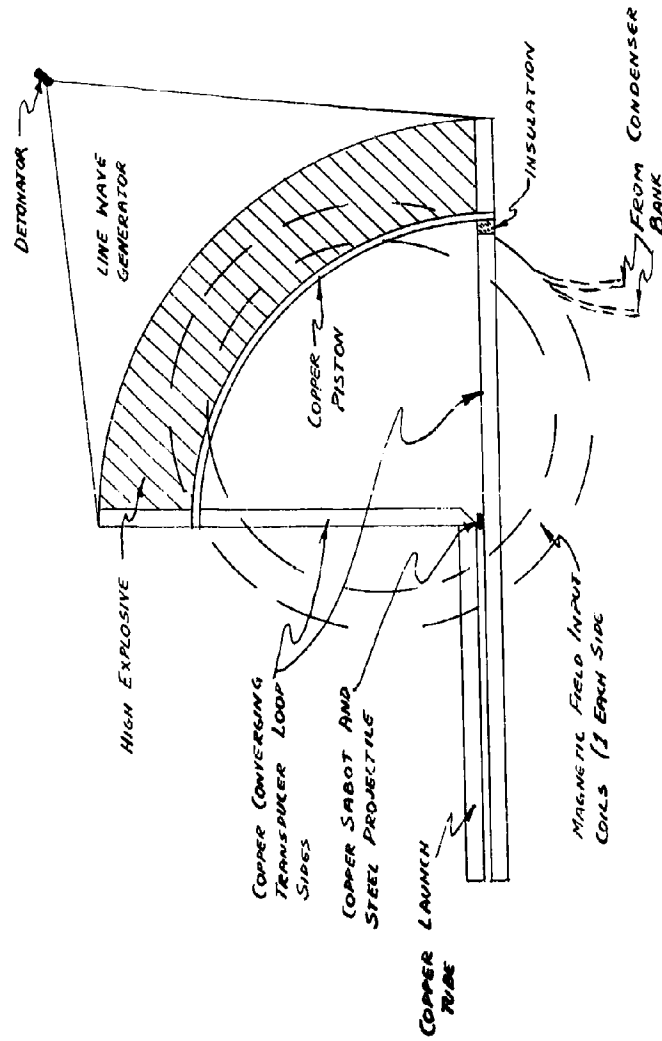 DETONATOR
LINE WAVE
GENERATOR
HIGH EXPLOSIVE
COPPER
PISTON
INSULATION
FROM CONDENSER
BANK
COPPER CONVERGING
TRANSDUCER LOOP
SIDES
COPPER SABOT AND
STEEL PROJECTILE
COPPER LAUNCH
TUBE
MAGNETIC FIELD INPUT
COILS (1 EACH SIDE